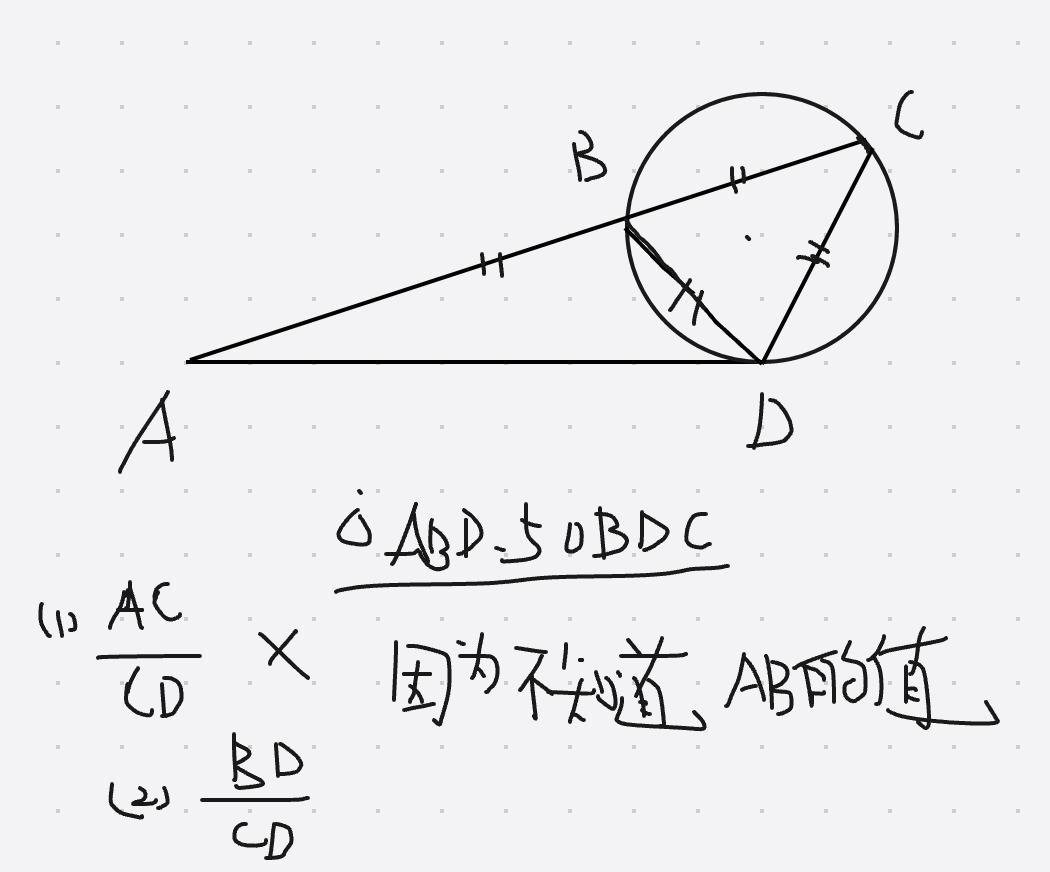 C
B
A
D
△ABD与△BDC
(1) AC/CD × 因为不知道AB的值
(2) BD/CD